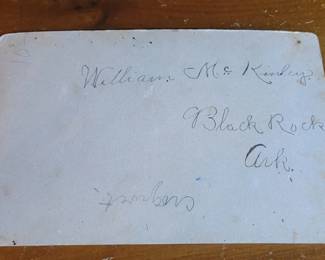 William Mc Kinley
Black Rock
Ark.